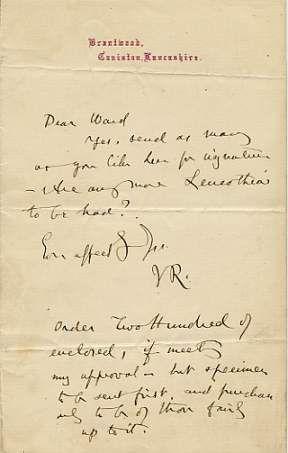 Brantwood,
Coniston, Lancashire.
Dear Ward
Yes, send as many
as you like here for signature
- Are any more Leucothias
to be had?
Ever affectly Yrs.
JR.
Order Two Hundred of
enclosed, if meets
my approval - but specimen
to be sent first, and purchase
only to be of those fairly
up to it.